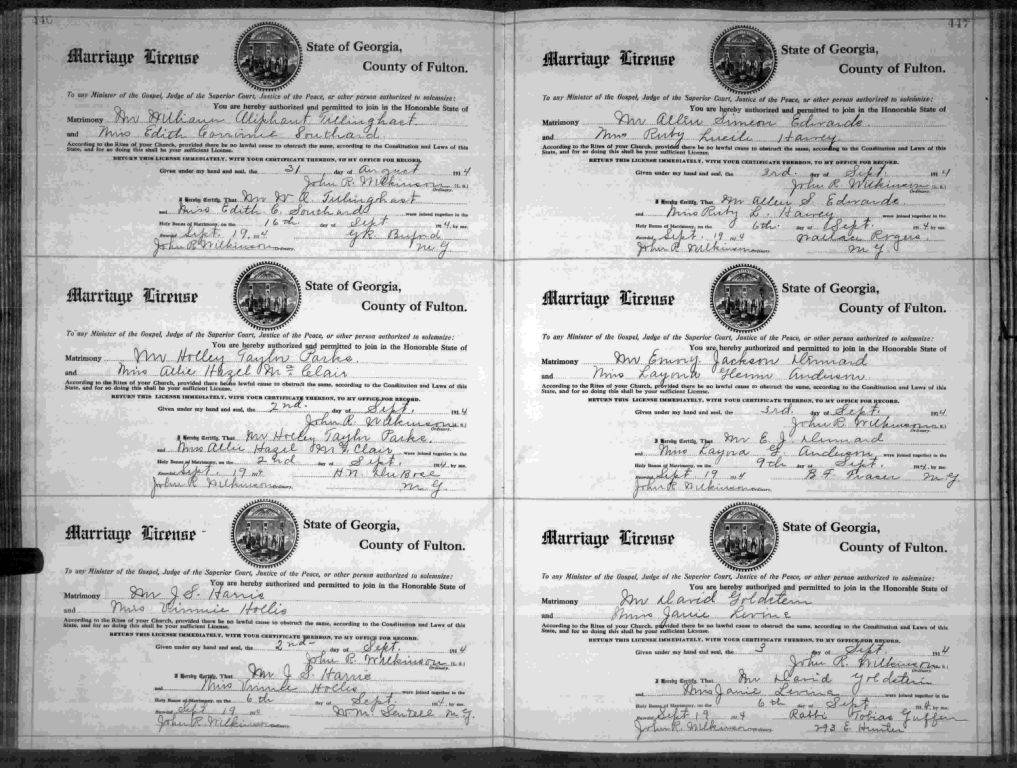 446
Marriage License
State of Georgia,
County of Fulton.
To any Minister of the Gospel, Judge of the Superior Court, Justice of the Peace, or other person authorized to solemnize:
You are hereby authorized and permitted to join in the Honorable State of
Matrimony Mr William Oliphant Tillinghast
and Miss Edith Corrinnie Southard
According to the Rites of your Church, provided there be no lawful cause to obstruct the same, according to the Constitution and Laws of this
State, and for so doing this shall be your sufficient License.
RETURN THIS LICENSE IMMEDIATELY, WITH YOUR CERTIFICATE THEREON, TO MY OFFICE FOR RECORD.
Given under my hand and seal, the 31 day of August 1914
John R. Wilkinson (L. S.)
Ordinary.
I Hereby Certify, That Mr W O. Tillinghast
and Miss Edith C. Southard were joined together in the
Holy Bonds of Matrimony, on the 16th day of Sept 1914 by me.
Recorded Sept. 19, 1914 G.R. Buford
John R Wilkinson Ordinary. M. G.
Marriage License
State of Georgia,
County of Fulton.
To any Minister of the Gospel, Judge of the Superior Court, Justice of the Peace, or other person authorized to solemnize:
You are hereby authorized and permitted to join in the Honorable State of
Matrimony Mr Holley Taylor Parks
and Miss Allie Hazel Mc Clair
According to the Rites of your Church, provided there be no lawful cause to obstruct the same, according to the Constitution and Laws of this
State, and for so doing this shall be your sufficient License.
RETURN THIS LICENSE IMMEDIATELY, WITH YOUR CERTIFICATE THEREON, TO MY OFFICE FOR RECORD.
Given under my hand and seal, the 2nd. day of Sept. 1914
John R. Wilkinson (L. S.)
Ordinary.
I Hereby Certify, That Mr Holley Taylor Parks.
and Miss Allie Hazel McClair were joined together in the
Holy Bonds of Matrimony, on the 2nd day of Sept. 1914, by me.
Recorded Sept. 19 1914 H.M. DuBose
John R. Wilkinson Ordinary. M. G.
Marriage License
State of Georgia,
County of Fulton.
To any Minister of the Gospel, Judge of the Superior Court, Justice of the Peace, or other person authorized to solemnize:
You are hereby authorized and permitted to join in the Honorable State of
Matrimony Mr J. S. Harris
and Miss Vinnie Hollis
According to the Rites of your Church, provided there be no lawful cause to obstruct the same, according to the Constitution and Laws of this
State, and for so doing this shall be your sufficient License.
RETURN THIS LICENSE IMMEDIATELY, WITH YOUR CERTIFICATE THEREON, TO MY OFFICE FOR RECORD.
Given under my hand and seal, the 2nd day of Sept. 1914
John R. Wilkinson (L. S.)
Ordinary.
I Hereby Certify, That Mr J. S. Harris
and Miss Vinnie Hollis were joined together in the
Holy Bonds of Matrimony, on the 6th day of Sept. 1914 by me.
Recorded Sept 19 1914 Wm. Sentell M. G.
John R. Wilkinson Ordinary.
447
Marriage License
State of Georgia,
County of Fulton.
To any Minister of the Gospel, Judge of the Superior Court, Justice of the Peace, or other person authorized to solemnize:
You are hereby authorized and permitted to join in the Honorable State of
Matrimony Mr Allen Simeon Edwards
and Miss Ruby Lucile Harvey
According to the Rites of your Church, provided there be no lawful cause to obstruct the same, according to the Constitution and Laws of this
State, and for so doing this shall be your sufficient License.
RETURN THIS LICENSE IMMEDIATELY, WITH YOUR CERTIFICATE THEREON, TO MY OFFICE FOR RECORD.
Given under my hand and seal, the 3rd. day of Sept. 1914
John R. Wilkinson (L. S.)
Ordinary.
I Hereby Certify, That Mr Allen S. Edwards
and Miss Ruby L. Harvey were joined together in the
Holy Bonds of Matrimony, on the 6th. day of Sept. 1914 by me.
Recorded Sept. 19 1914 Wallace Rogers.
John R. Wilkinson Ordinary. M. G.
Marriage License
State of Georgia,
County of Fulton.
To any Minister of the Gospel, Judge of the Superior Court, Justice of the Peace, or other person authorized to solemnize:
You are hereby authorized and permitted to join in the Honorable State of
Matrimony Mr Emory Jackson Dinnard
and Miss Layona Glenn Anderson
According to the Rites of your Church, provided there be no lawful cause to obstruct the same, according to the Constitution and Laws of this
State, and for so doing this shall be your sufficient License.
RETURN THIS LICENSE IMMEDIATELY, WITH YOUR CERTIFICATE THEREON, TO MY OFFICE FOR RECORD.
Given under my hand and seal, the 3rd. day of Sept. 1914
John R. Wilkinson (L. S.)
Ordinary.
I Hereby Certify, That Mr E. J. Dinnard
and Miss Layona G. Anderson were joined together in the
Holy Bonds of Matrimony, on the 9th day of Sept. 1914, by me.
Recorded Sept 19 1914 B. F. Fraser M G
John R. Wilkinson Ordinary.
Marriage License
State of Georgia,
County of Fulton.
To any Minister of the Gospel, Judge of the Superior Court, Justice of the Peace, or other person authorized to solemnize:
You are hereby authorized and permitted to join in the Honorable State of
Matrimony Mr David Goldstein
and Miss Janie Levine
According to the Rites of your Church, provided there be no lawful cause to obstruct the same, according to the Constitution and Laws of this
State, and for so doing this shall be your sufficient License.
RETURN THIS LICENSE IMMEDIATELY, WITH YOUR CERTIFICATE THEREON, TO MY OFFICE FOR RECORD.
Given under my hand and seal, the 3 day of Sept. 1914
John R. Wilkinson (L. S.)
Ordinary.
I Hereby Certify, That Mr David Goldstein
and Miss Janie Levine were joined together in the
Holy Bonds of Matrimony, on the 6th day of Sept 1914 by me.
Recorded Sept 19 1914 Rabbi Tobias Gaffen
John R. Wilkinson Ordinary. 293 E Hunter